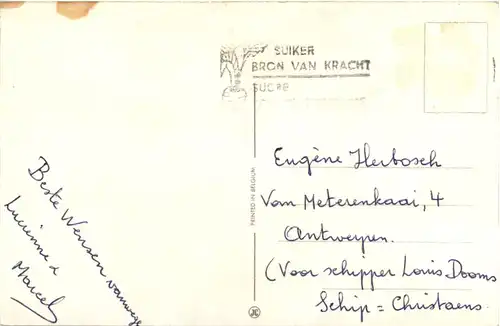 SUIKER
BRON VAN KRACHT
SUCRE
Beste Wensen vanwege
Lucienne &
Marcel
PRINTED IN BELGIUM
Eugène Herbosch
Van Meterenkaai, 4
Antwerpen.
(Voor schipper Louis Dooms
Schip = Christaens